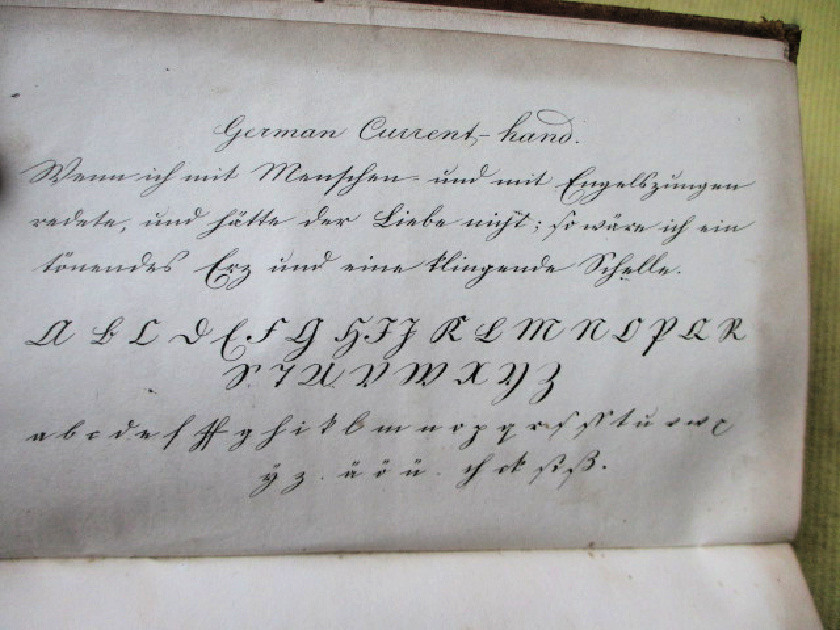 German Current-hand.
Wenn ich mit Menschen- und mit Engelszungen
redete, und hätte der Liebe nicht; so wäre ich ein
tönendes Erz und eine klingende Schelle.
A B C D E F G H I J K L M N O P Q R
S T U V W X Y Z
a b c d e f ff g h i k l m n o p q r s st t u v w x
ÿ z . ä ö ü . ch ck st ß.